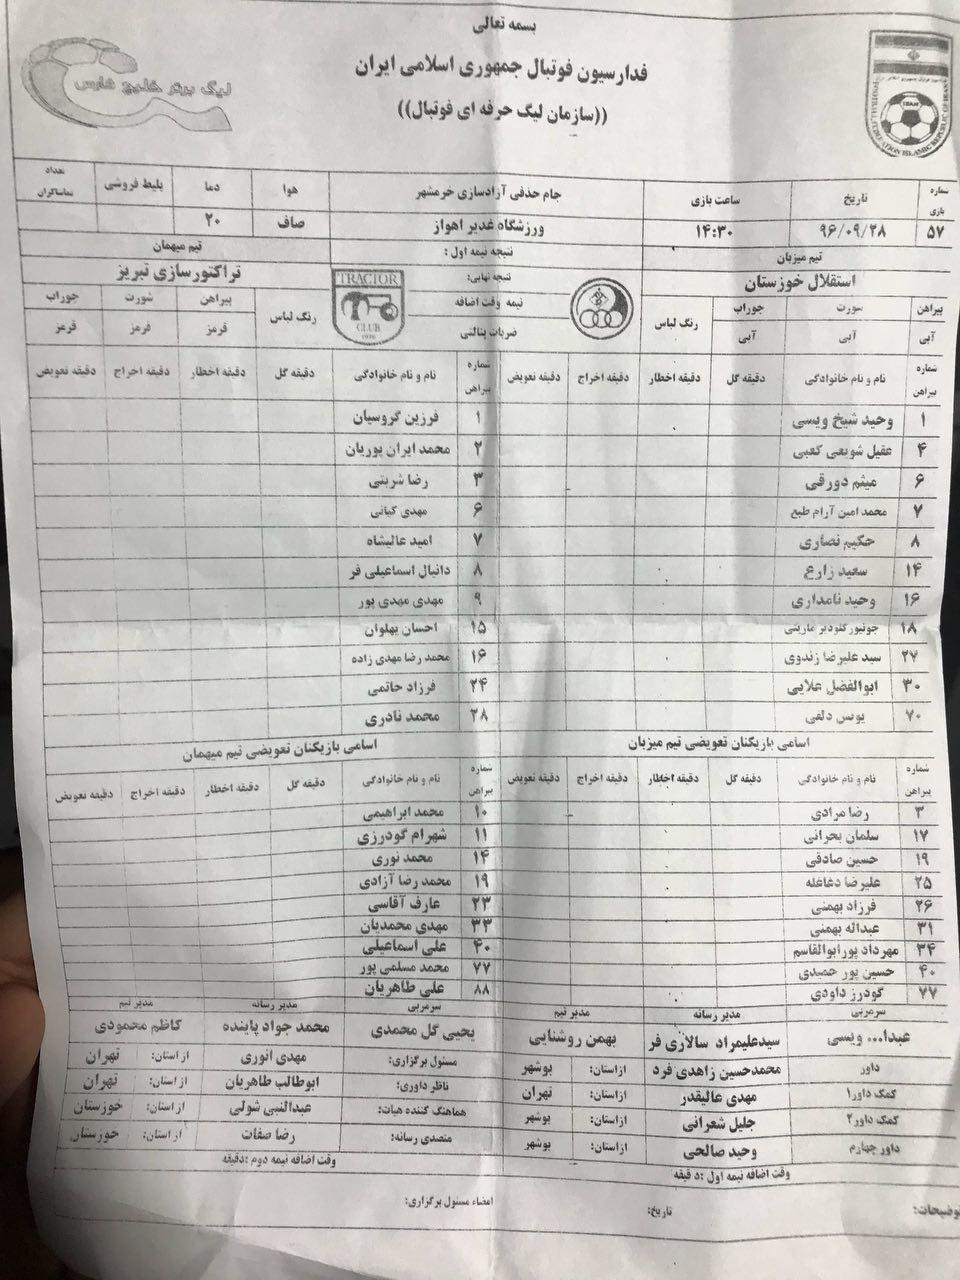 بسمه تعالی
فدارسیون فوتبال جمهوری اسلامی ایران
((سازمان لیگ حرفه ای فوتبال))
لیگ برتر خلیج فارس
شماره بازی تاریخ ساعت بازی جام حذفی آزادسازی خرمشهر هوا دما بلیط فروشی تعداد تماشاگران
۵۷ ۹۶/۰۹/۲۸ ۱۴:۳۰ ورزشگاه غدیر اهواز صاف ۲۰
تیم میزبان نتیجه نیمه اول : تیم میهمان
استقلال خوزستان نتیجه نهایی: تراکتورسازی تبریز
TRACTOR
CLUB
1970
پیراهن شورت جوراب رنگ لباس نیمه وقت اضافه رنگ لباس پیراهن شورت جوراب
آبی آبی آبی ضربات پنالتی قرمز قرمز قرمز
شماره پیراهن نام و نام خانوادگی دقیقه گل دقیقه اخطار دقیقه اخراج دقیقه تعویض شماره پیراهن نام و نام خانوادگی دقیقه گل دقیقه اخطار دقیقه اخراج دقیقه تعویض
۱ وحید شیخ ویسی ۱ فرزین گروسیان
۴ عقیل شویعی کعبی ۲ محمد ایران پوریان
۶ میثم دورقی ۳ رضا شربتی
۷ محمد امین آرام طبع ۶ مهدی کیانی
۸ حکیم نصاری ۷ امید عالیشاه
۱۴ سعید زارع ۸ دانیال اسماعیلی فر
۱۶ وحید نامداری ۹ مهدی مهدی پور
۱۸ جونیور کلودیر مارینی ۱۵ احسان پهلوان
۲۷ سید علیرضا زندوی ۱۶ محمد رضا مهدی زاده
۳۰ ابوالفضل علایی ۲۴ فرزاد حاتمی
۷۰ یونس دلفی ۲۸ محمد نادری
اسامی بازیکنان تعویضی تیم میزبان اسامی بازیکنان تعویضی تیم میهمان
شماره پیراهن نام و نام خانوادگی دقیقه گل دقیقه اخطار دقیقه اخراج دقیقه تعویض شماره پیراهن نام و نام خانوادگی دقیقه گل دقیقه اخطار دقیقه اخراج دقیقه تعویض
۳ رضا مرادی ۱۰ محمد ابراهیمی
۱۷ سلمان بحرانی ۱۱ شهرام گودرزی
۱۹ حسین صادقی ۱۴ محمد نوری
۲۵ علیرضا دغاغله ۱۹ محمد رضا آزادی
۲۶ فرزاد بهمنی ۲۳ عارف آقاسی
۳۱ عبداله بهمنی ۳۳ مهدی محمدیان
۳۴ مهرداد پورابوالقاسم ۴۰ علی اسماعیلی
۴۰ حسین پور حمیدی ۷۷ محمد مسلمی پور
۷۷ گودرز داودی ۸۸ علی طاهریان
سرمربی مدیر رسانه مدیر تیم سرمربی مدیر رسانه مدیر تیم
عبدا... ویسی سیدعلیمراد سالاری فر بهمن روشنایی یحیی گل محمدی محمد جواد پاینده کاظم محمودی
داور محمدحسین زاهدی فرد ازاستان: بوشهر مسئول برگزاری: مهدی انوری ازاستان: تهران
کمک داور۱ مهدی عالیقدر ازاستان: تهران ناظر داوری: ابوطالب طاهریان ازاستان: تهران
کمک داور۲ جلیل شعرانی ازاستان: بوشهر هماهنگ کننده هیات: عبدالنبی شولی ازاستان: خوزستان
داور چهارم وحید صالحی ازاستان: بوشهر متصدی رسانه: رضا صفات ازاستان: خوزستان
وقت اضافه نیمه اول :دقیقه وقت اضافه نیمه دوم :دقیقه
توضیحات: تاریخ: امضاء مسئول برگزاری: